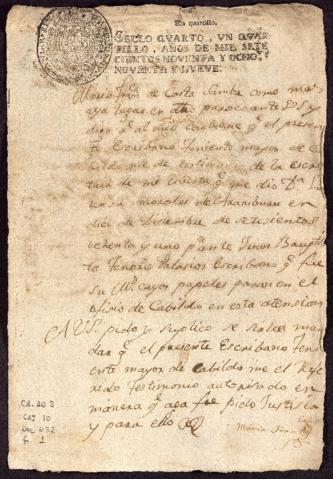 Un quartillo.
SELLO QVARTO, VN QVAR
TILLO, AÑOS DE MIL SETE
CIENTOS NOVENTA Y OCHO,
NOVENTA Y NVEVE.
Maria de Costa Samba como mas
aya lugar en paresco ante VSS y
digo q.e al mio combiene q.e el presen
te Escribano teniente mayor de Ca
bildo me de testimonio de la Escri
tura de mi q.e me dio D.a Lu
Morales de Aramburu en
diez de Diciembre de setesientos
ochenta y uno p.r ante Juan Baupti
ta Tenorio Palasios Escribano q.e fue
su M. cuyos papeles paran en el
ofisio de Cabildo en esta atension
A VS. pido y suplico se sirba man
dar q.e el presente Escribano Teni
ente mayor de Cabildo me el Refe
rido Testimonio autorisado en
manera q.e aga fee pido Justicia
y para ello
Maria
CA-AD 3
CAJ 10
DOC 632
f 1